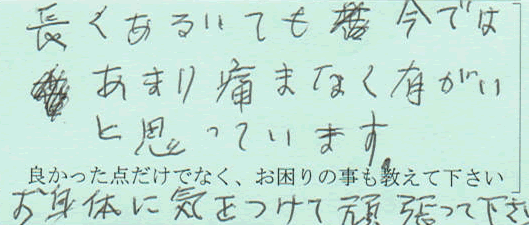 長くあるいても 今では
あまり痛まなく有がい
と思っています。
良かった点だけでなく、お困りの事も教えて下さい
お身体に気をつけて頑張って下さい